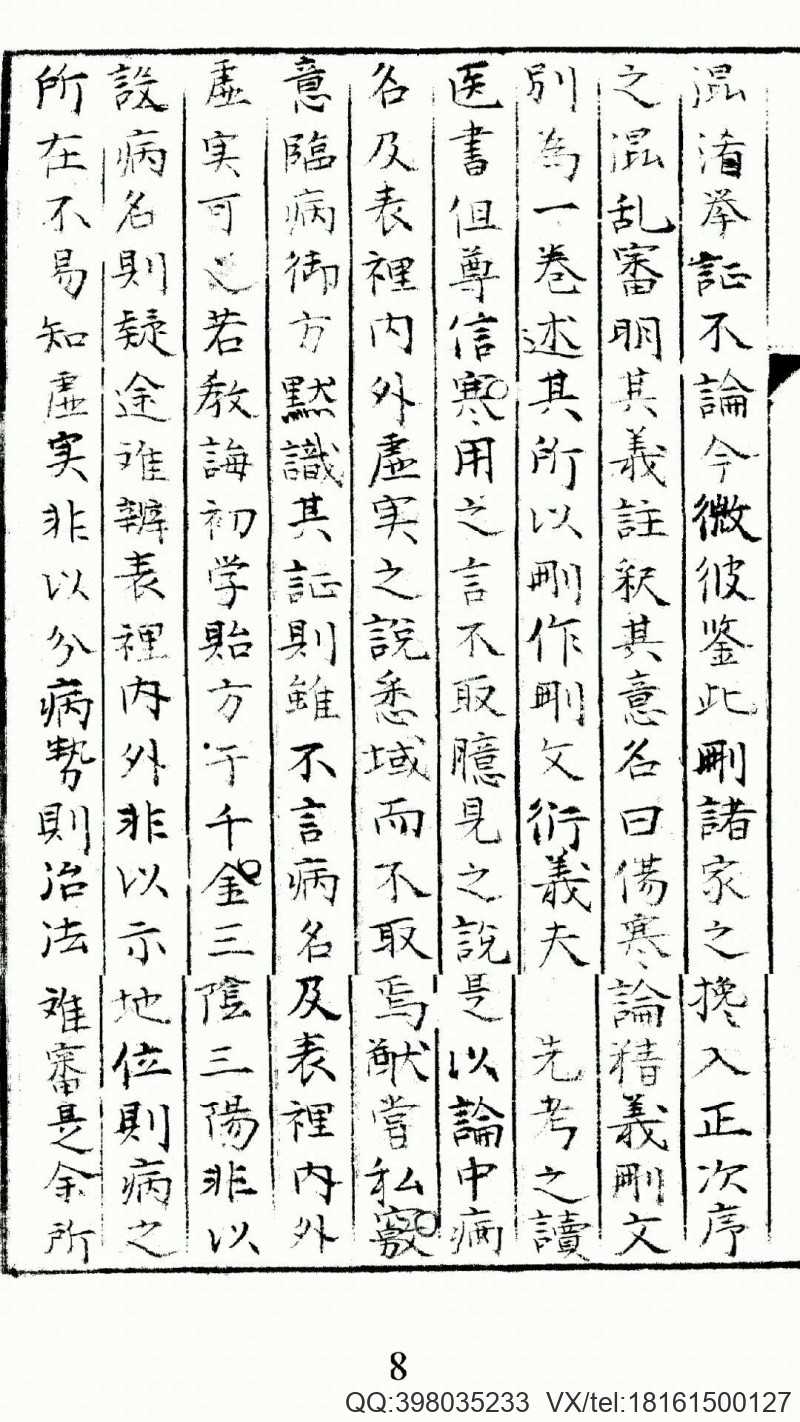 混淆挙証不論今微彼鉴此刪諸家之攙入正次序
之混乱審明其義註釈其意名曰傷寒論精義刪文
別為一巻述其所以刪作刪文衍義夫　先考之讀
医書但尊信寒用之言不取臆見之說是以論中病
名及表裡内外虛実之說悉域而不取焉猷嘗私竅
意臨病御方黙識其証則雖不言病名及表裡内外
虛実可也若教誨初学貽方于千金三陰三陽非以
設病名則疑途难辨表裡内外非以示地位則病之
所在不易知虛実非以分病势則治法难審是余所
8
QQ:398035233 VX/tel:18161500127